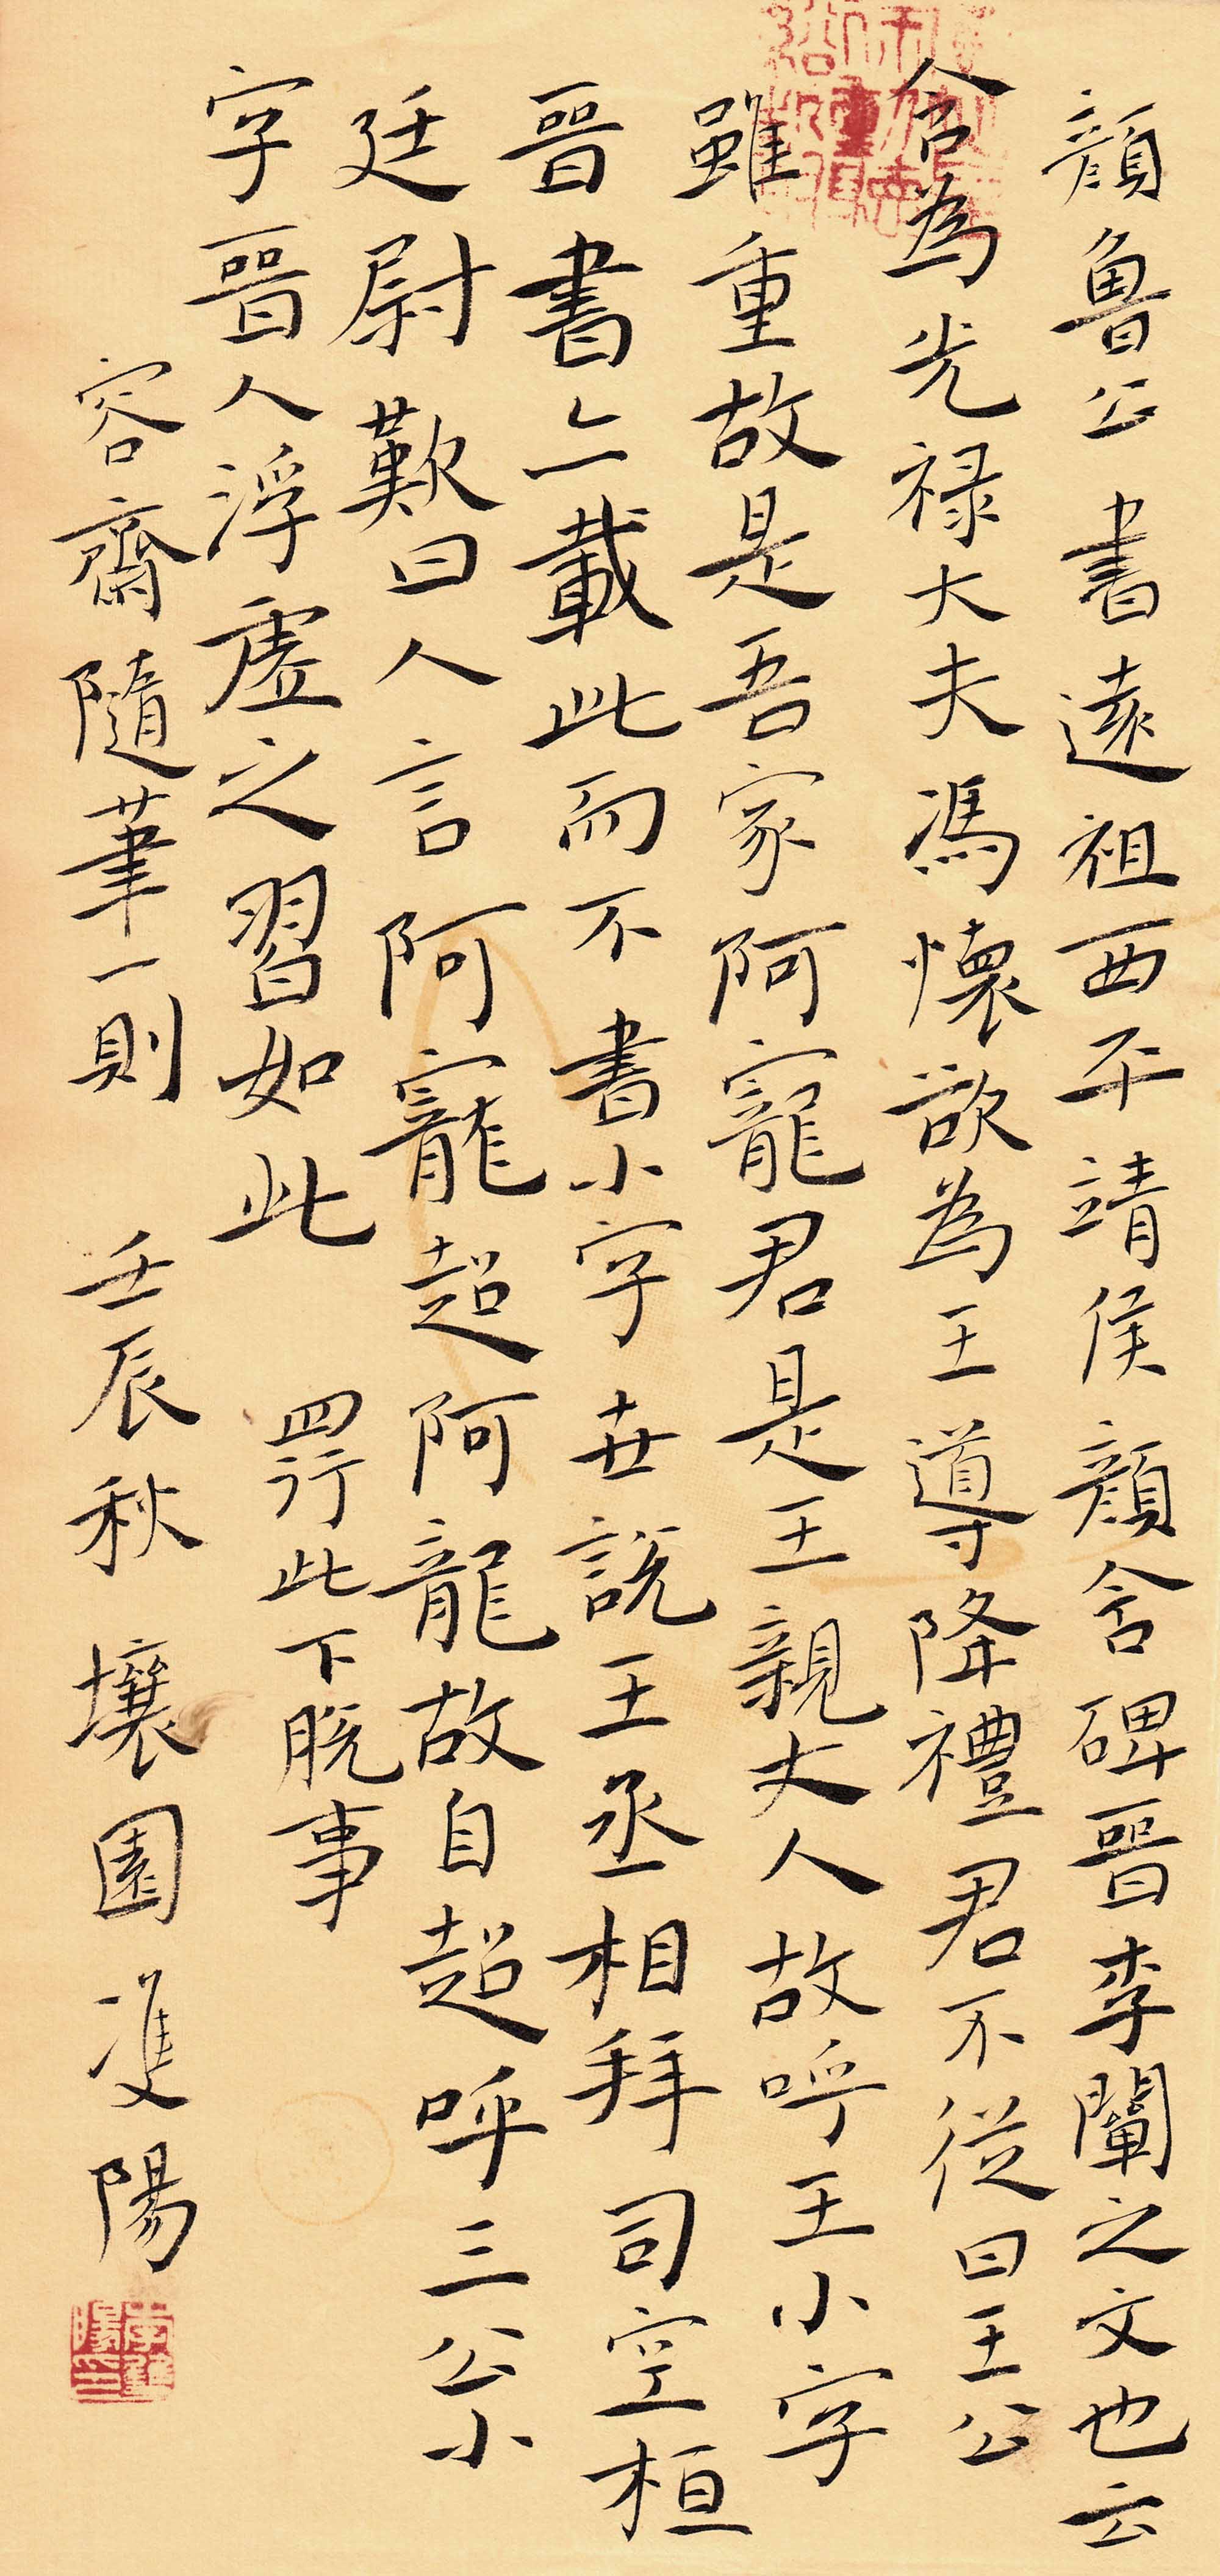 顏魯公書遠祖西平靖侯顏含碑晉李闡之文也云
含為光祿大夫馮懷欲為王導降禮君不從曰王公
雖重故是吾家阿寵君是王親丈人故呼王小字
晉書亦載此而不書小字世說王丞相拜司空桓
廷尉歎曰人言阿寵超阿龍故自超呼三公小
字晉人浮虛之習如此
四行此下脫事
容齋隨筆一則 壬辰秋 壤園雙陽